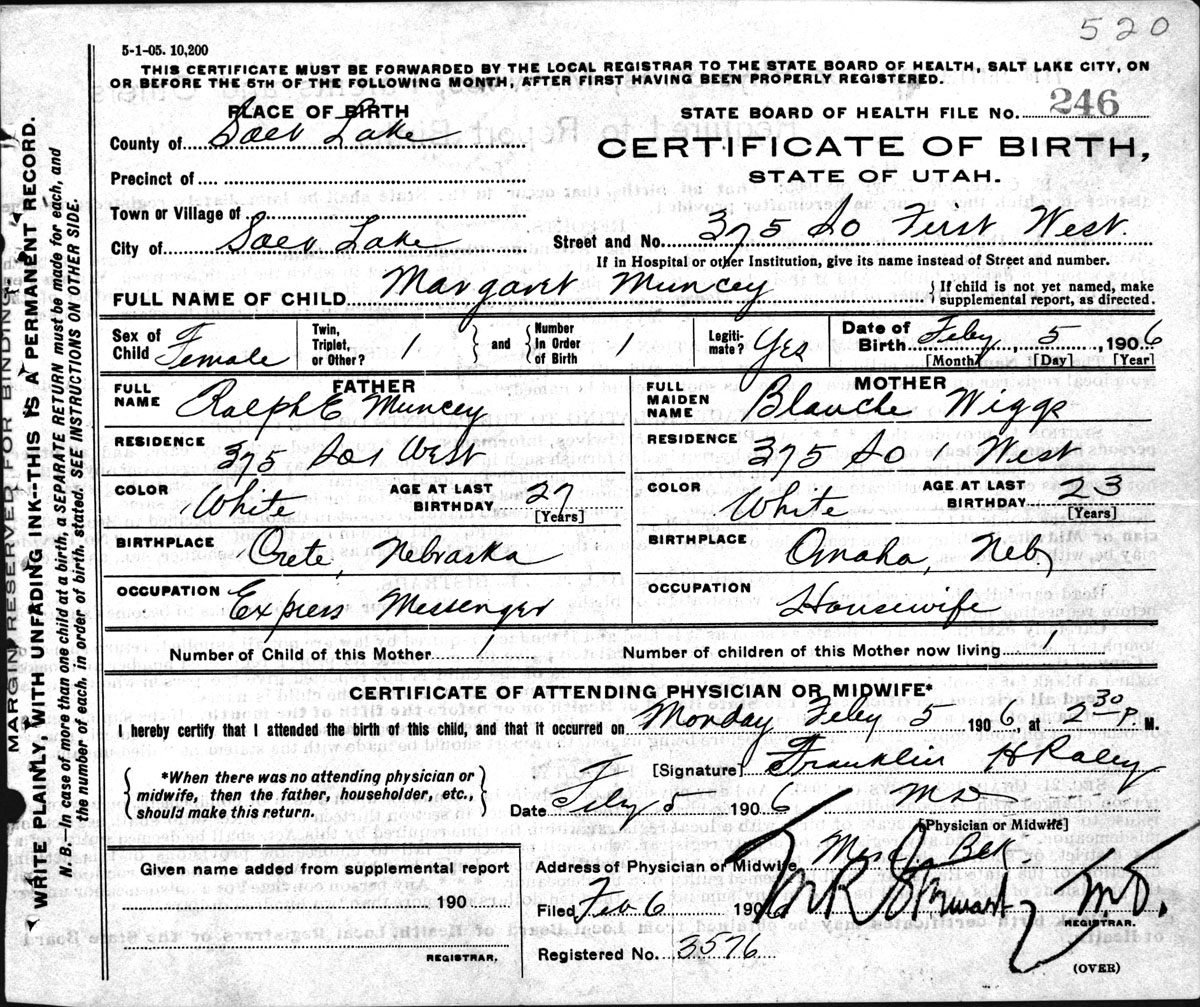 520
5-1-05. 10,200
THIS CERTIFICATE MUST BE FORWARDED BY THE LOCAL REGISTRAR TO THE STATE BOARD OF HEALTH, SALT LAKE CITY, ON
OR BEFORE THE 5TH OF THE FOLLOWING MONTH, AFTER FIRST HAVING BEEN PROPERLY REGISTERED.
PLACE OF BIRTH
STATE BOARD OF HEALTH FILE No. 246
County of Salt Lake
CERTIFICATE OF BIRTH,
STATE OF UTAH.
Precinct of
Town or Village of
City of Salt Lake
Street and No. 375 So First West.
If in Hospital or other Institution, give its name instead of Street and number.
FULL NAME OF CHILD Margaret Muncey
If child is not yet named, make
supplemental report, as directed.
Sex of Child Female
Twin, Triplet, or Other? 1
and
Number In Order of Birth 1
Legitimate? Yes
Date of Birth Feby 5, 1906
[Month] [Day] [Year]
FATHER
FULL NAME Ralph E Muncey
MOTHER
FULL MAIDEN NAME Blanche Wiggs
RESIDENCE 375 So 1 West
RESIDENCE 375 So West
COLOR White
AGE AT LAST BIRTHDAY 27
[Years]
COLOR White
AGE AT LAST BIRTHDAY 23
[Years]
BIRTHPLACE Crete, Nebraska
BIRTHPLACE Omaha, Neb
OCCUPATION Express Messenger
OCCUPATION Housewife
Number of Child of this Mother 1
Number of children of this Mother now living 1
CERTIFICATE OF ATTENDING PHYSICIAN OR MIDWIFE*
I hereby certify that I attended the birth of this child, and that it occurred on Monday Feby 5 1906, at 2 30 P. M.
*When there was no attending physician or
midwife, then the father, householder, etc.,
should make this return.
[Signature] Franklin H Raley
Date Feby 1906 MD
[Physician or Midwife]
Given name added from supplemental report
190
REGISTRAR.
Address of Physician or Midwife
Filed Feb 6 1906 Stewart, M.D.
REGISTRAR.
Registered No. 3576
(OVER)
MARGIN RESERVED FOR BINDING.
WRITE PLAINLY, WITH UNFADING INK--THIS IS A PERMANENT RECORD.
N.B.--In case of more than one child at a birth, a SEPARATE RETURN must be made for each, and
the number of each, in order of birth, stated. SEE INSTRUCTIONS ON OTHER SIDE.